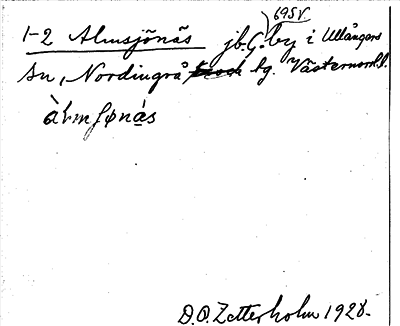 695V
1-2 Almsjönäs jb.G.by i Ullångers
sn, Nordingrå tg. Västernorrl.
àlmʃøná̱s
D.O.Zetterholm 1928.